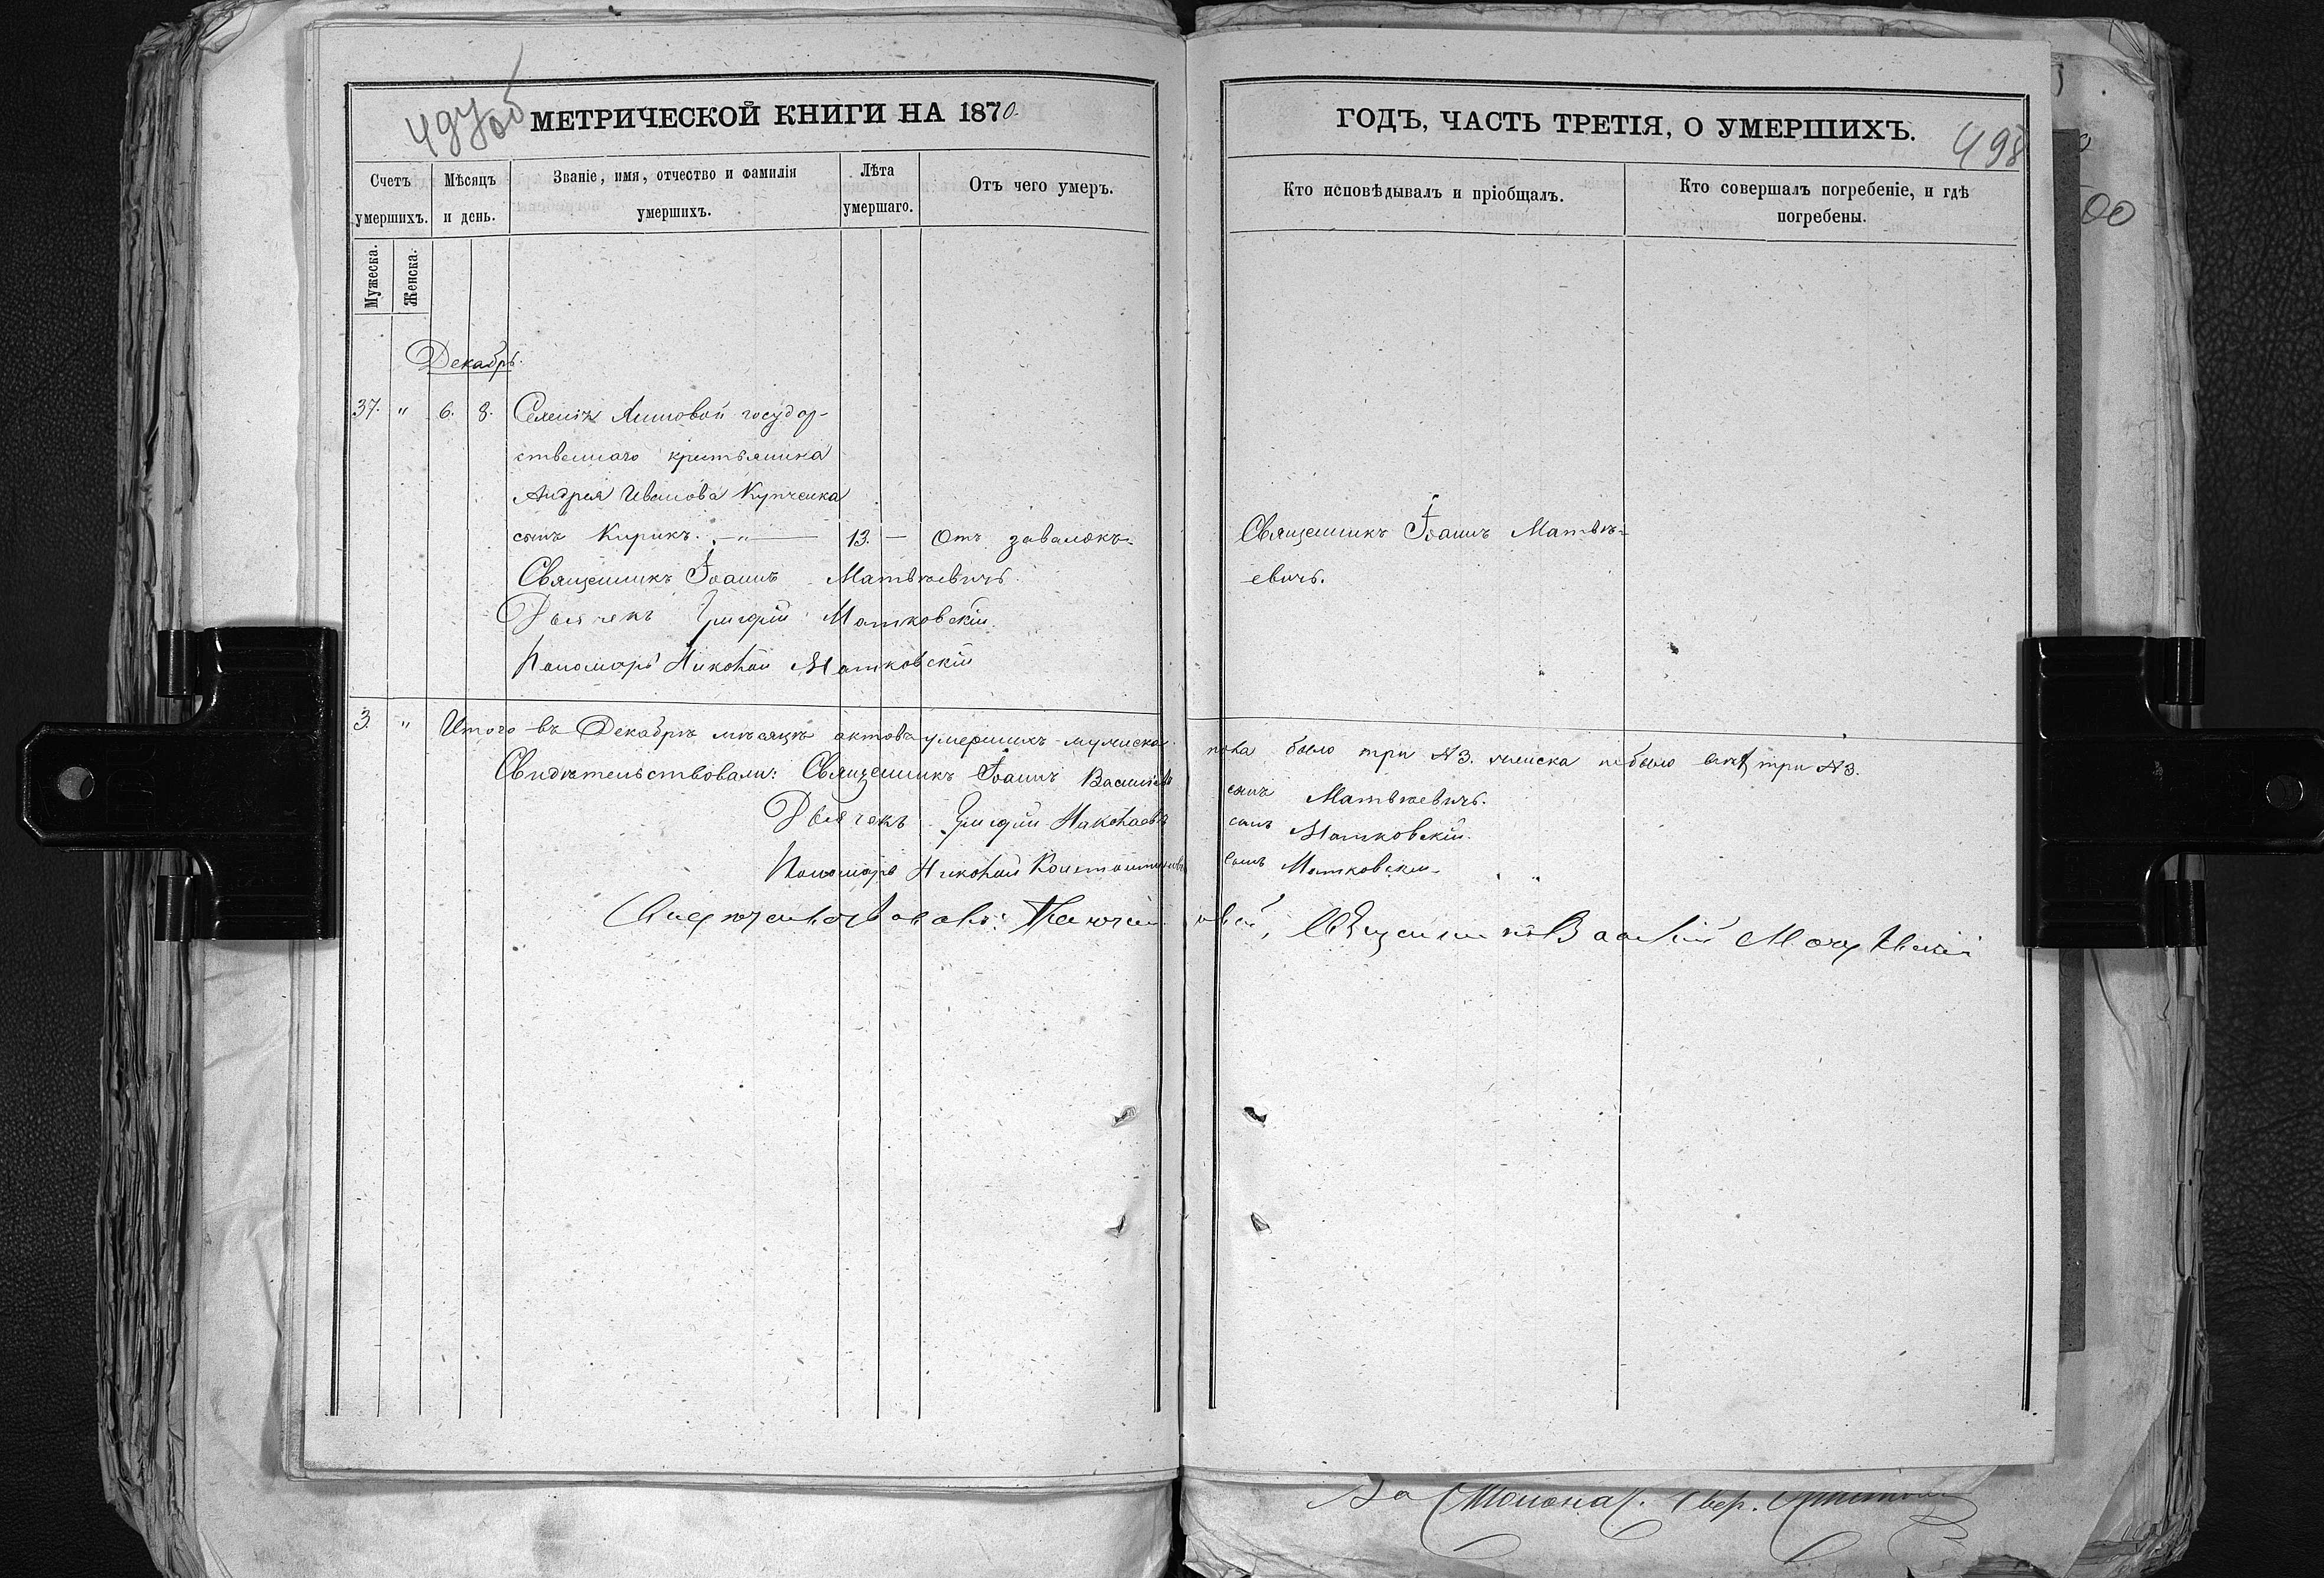 МЕТРИЧЕСКОЙ КНИГИ НА 1870.
Счетъ умершихъ.
Мѣсяцъ и день.
Званіе, имя, отчество и фамилія умершихъ.
Лѣта умершаго.
Отъ чего умеръ.
Мужеска.
Женска.
Декабрь.
37. " 6. 8. государ-
ственнаго крестьянина
Андрея Иванова Купченка
сынъ Кирикъ. — " — 13. — Отъ завалокъ.
Священникъ Іоаннъ Матвѣевичъ.
Дьячекъ Григорій Матковскій.
Пономарь Николай Матковскій
3. " Итого въ Декабрѣ мѣсяцѣ актовъ умершихъ мужеска
Свидѣтельствовали: Священникъ Іоаннъ Васильевъ
Дьячекъ Григорій Николаевъ
Пономарь Николай Константиновъ
ГОДЪ, ЧАСТЬ ТРЕТІЯ, О УМЕРШИХЪ.
498
Кто исповѣдывалъ и пріобщалъ.
Кто совершалъ погребеніе, и гдѣ погребены.
Священникъ Іоаннъ Матвѣ-
евичъ.
пола было три №3. женска небыло три №3.
сынъ Матвѣевичъ.
сынъ Матковскій.
сынъ Матковскій.
Священникъ Василій
00